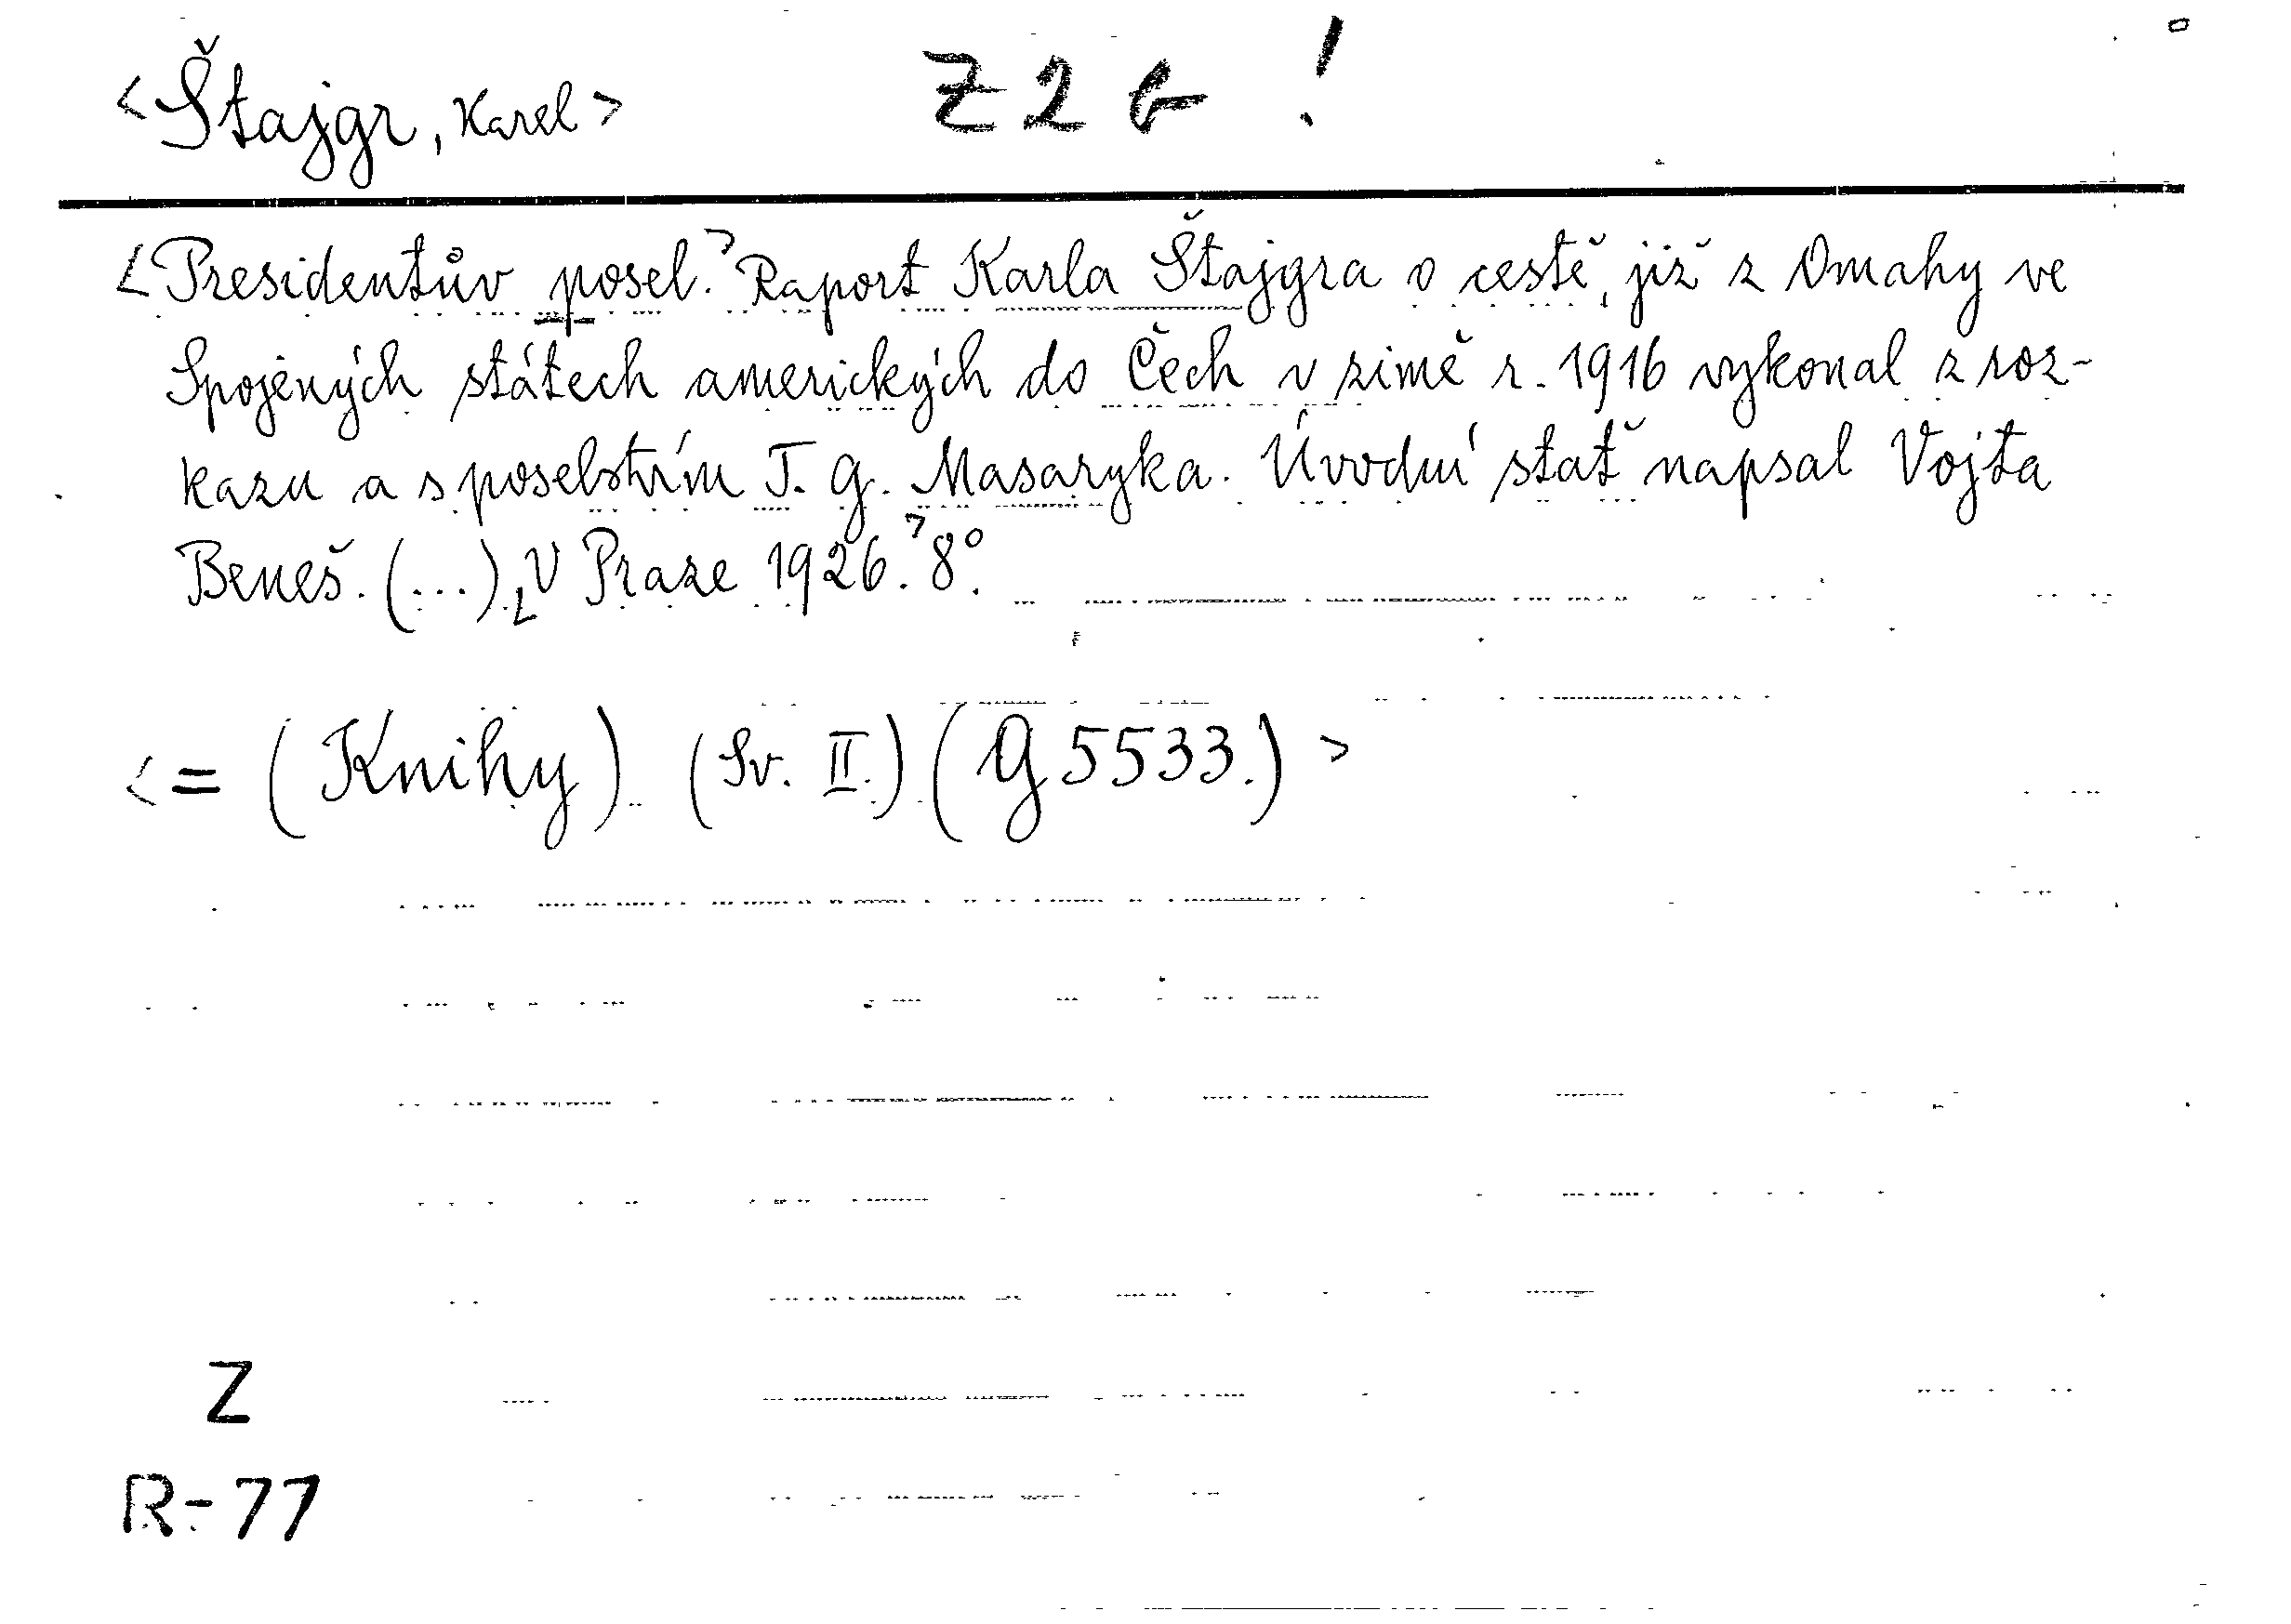 <Štajgr, Karel> Z 2 b !
<Presidentův posel.> Raport Karla Štajgra o cestě, již z Omahy ve
Spojených státech amerických do Čech v zimě r. 1916 vykonal z roz-
kazu a s poselstvím T. G. Masaryka. Úvodní stať napsal Vojta
Beneš. (...) <V Praze 1926.> 8°.
<= (Knihy) (Sv. II.) (G 5533.) >
Z
R-77